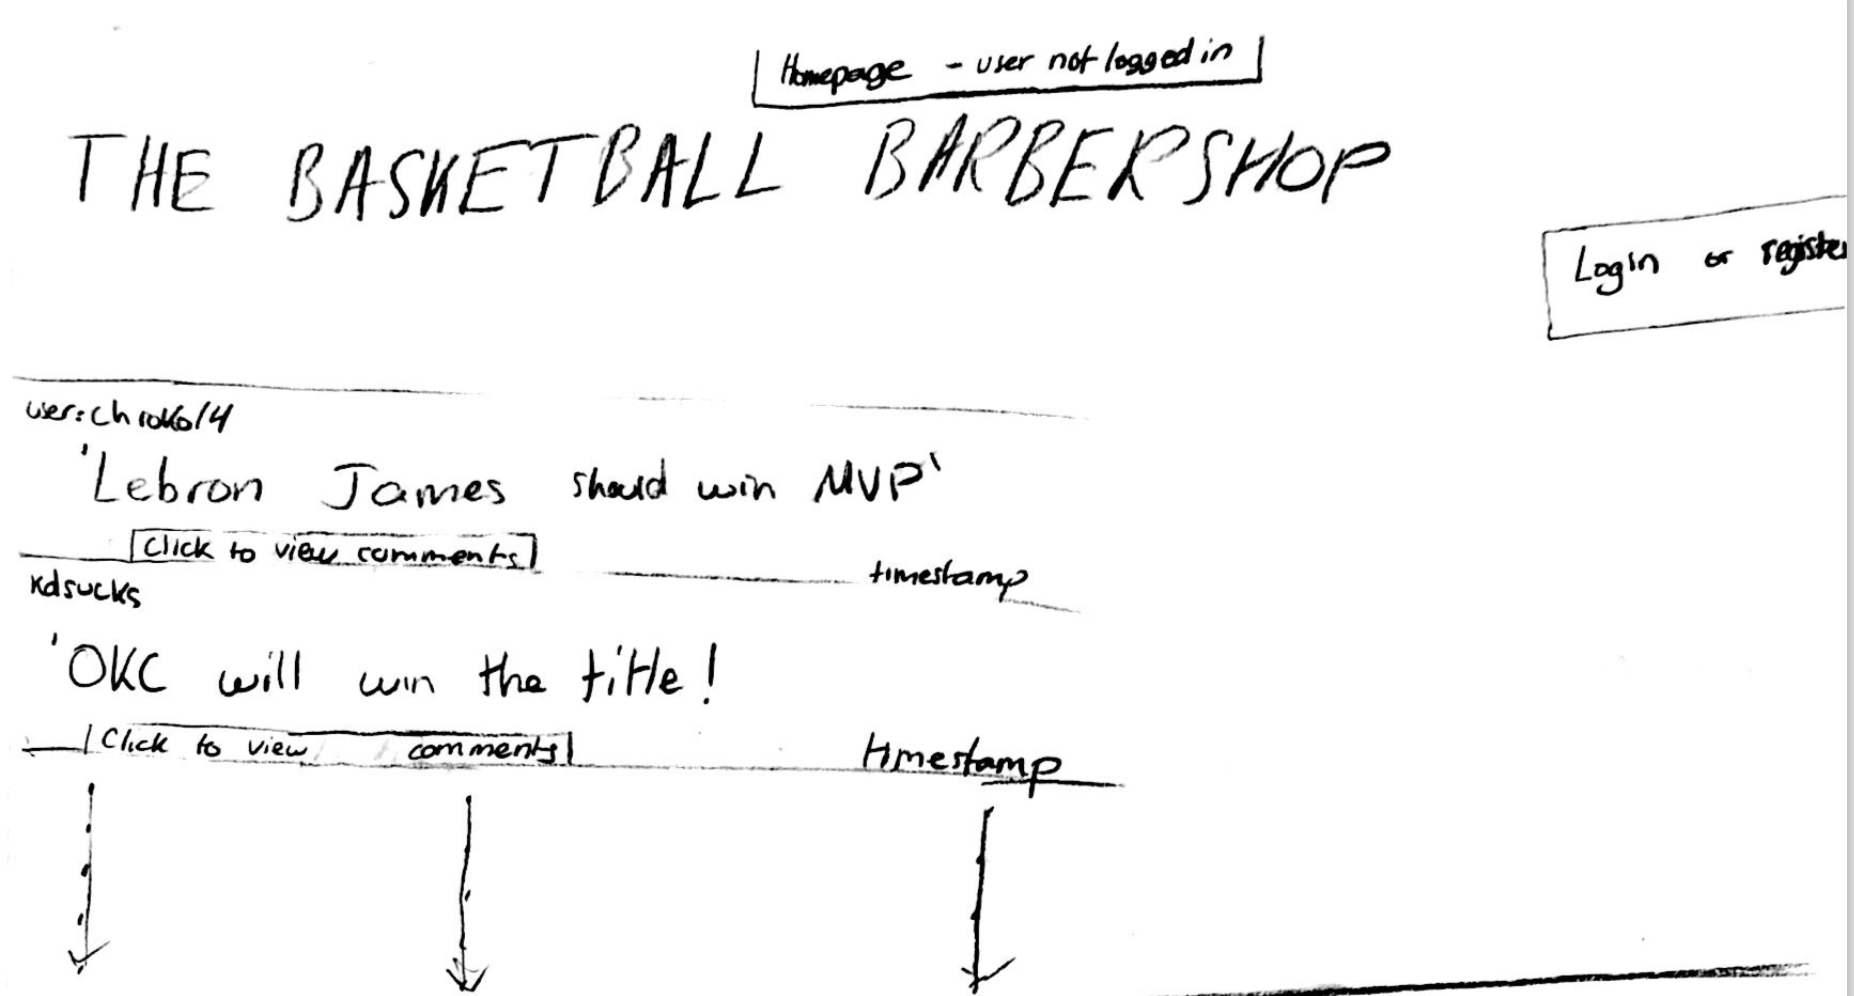 Homepage - user not logged in
THE BASKETBALL BARBERSHOP
Login or register
'Lebron James should win MVP'
Click to view comments
timestamp
Kdsucks
'OKC will win the title!
Click to view comments
timestamp